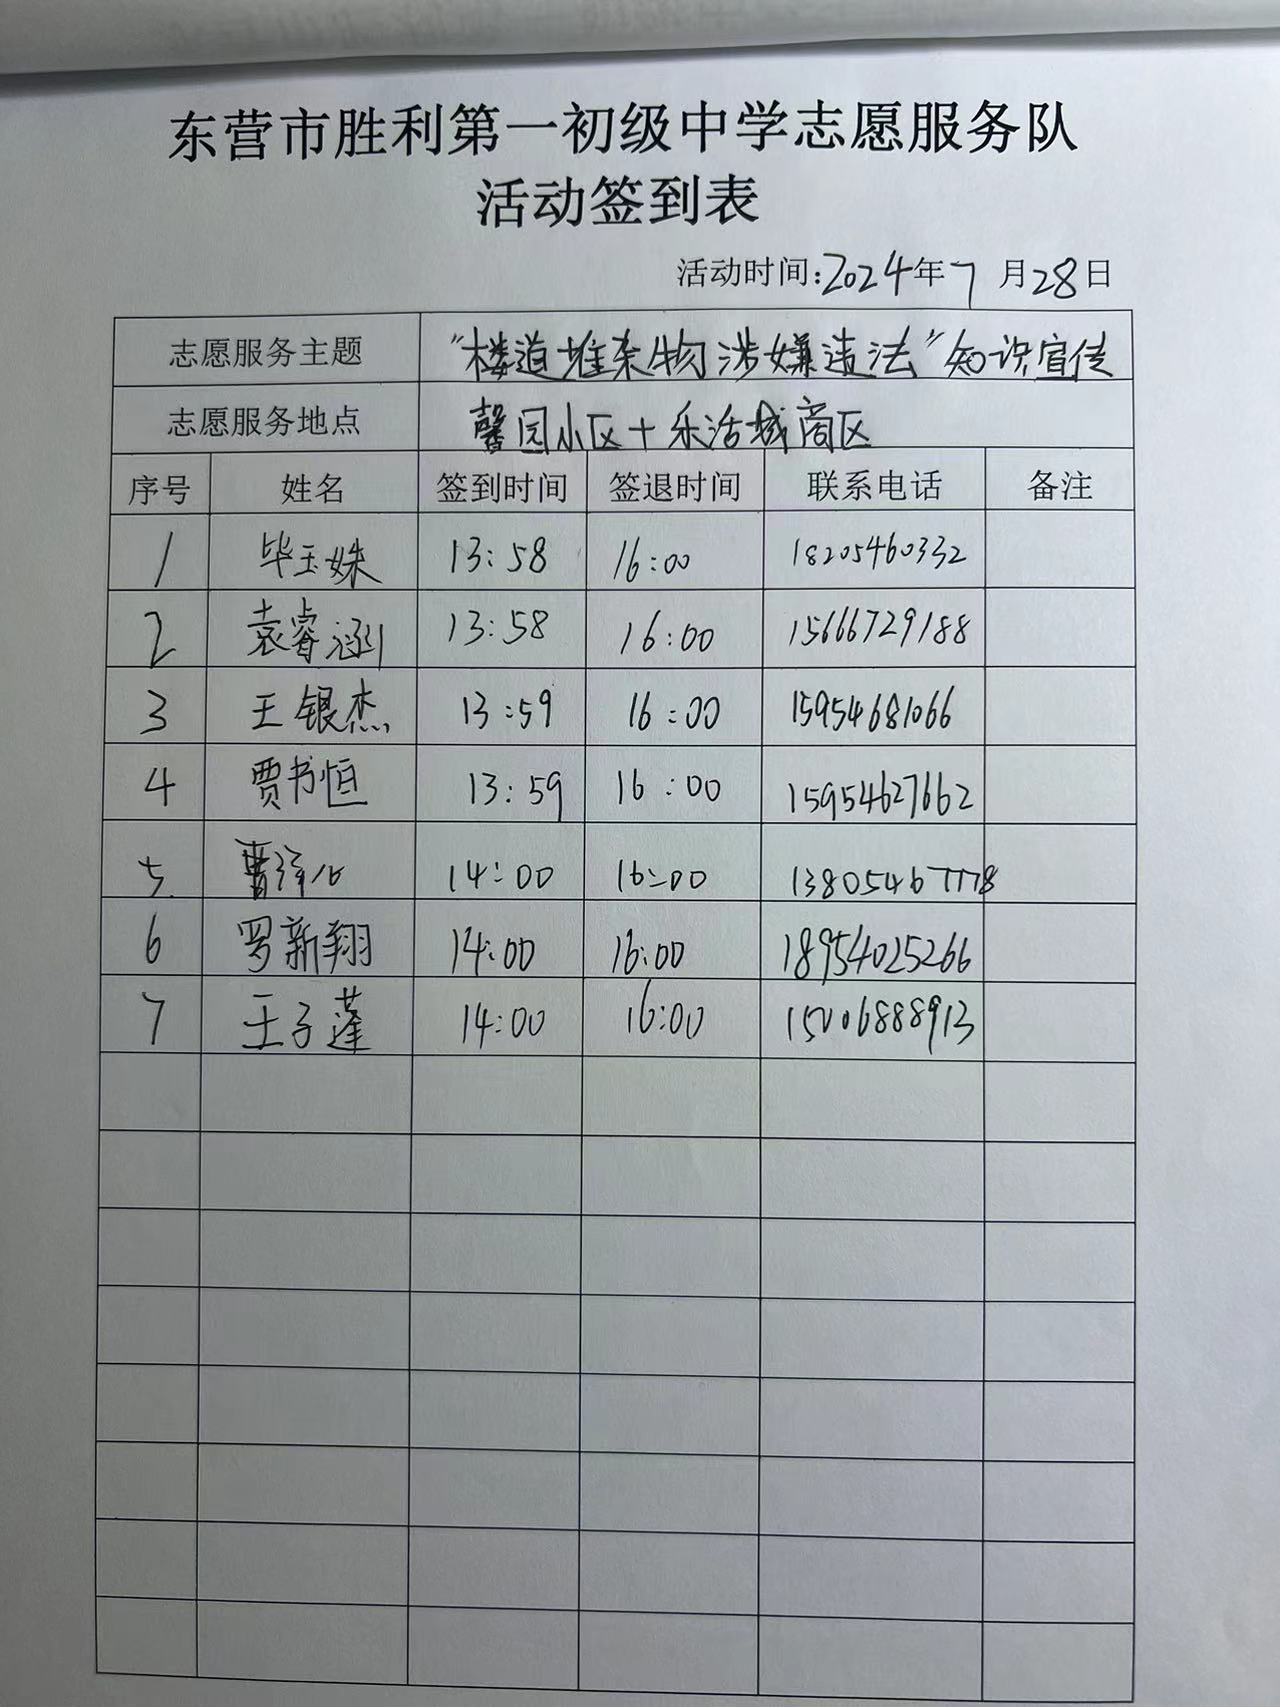 东营市胜利第一初级中学志愿服务队
活动签到表
活动时间:2024年7月28日
志愿服务主题 “楼道堆杂物涉嫌违法”知识宣传
志愿服务地点 馨园小区+乐活城商区
序号 姓名 签到时间 签退时间 联系电话 备注
1 毕玉姝 13:58 16:00 18205460332
2 袁睿涵 13:58 16:00 15666729188
3 王银杰 13:59 16:00 15954681066
4 贾书恒 13:59 16:00 15954627662
5 曹 14:00 16:00 13805467778
6 罗新翔 14:00 16:00 18954025266
7 王子蓬 14:00 16:00 15006888913